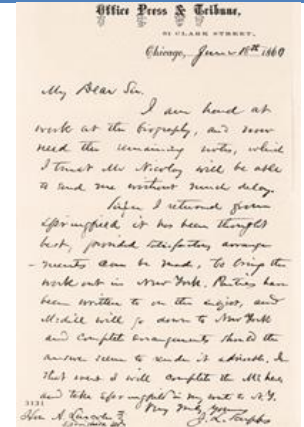 Office Press & Tribune,
51 CLARK STREET.
Chicago, June 18th 1860
My Dear Sir.
I am hard at
work at the biography, and now
need the remaining notes, which
I trust Mr Nicolay will be able
to send me without much delay.
Since I returned from
Springfield it has been thought
best, provided satisfactory arrange
-ments can be made, to bring the
work out in New York. Parties have
been written to on the subject, and
Medill will go down to New York
and complete arrangements should the
answer seem to render it advisable. In
that event I will complete the MS here
and take Springfield in my route to N.Y.
Very truly yours
J. L. Scripps
Hon A. Lincoln
3131